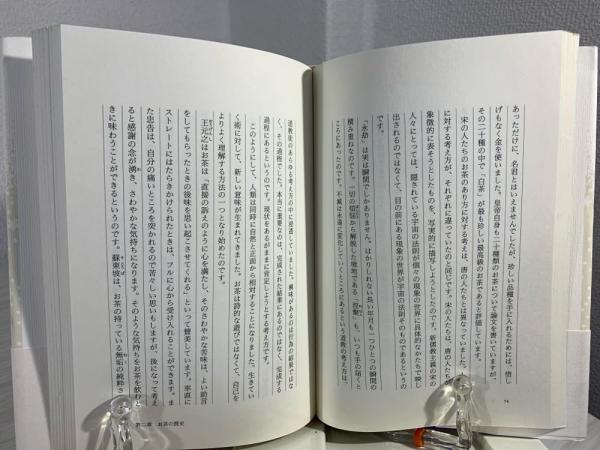 あっただけに、名君とはいえませんでしたが、珍しい品種を手に入れるためには、惜し
げもなく金を使いました。皇帝自身も二十種類のお茶について論文を書いていますが、
その二十種の中で「白茶」が最も珍しい最高級のお茶であると評価しています。
宋の人たちのお茶のあり方に対する考えは、唐の人たちとは異なっていました。人生
に対する考え方が、それぞれに違っていたのと同じです。宋の人たちは、唐の人たちが
象徴的に表そうとしたものを、写実的に描写しようとしたのです。新儒教主義の宋の
人々にとっては、隠されている宇宙の法則が個々の現象の世界に具体的なかたちで映し
出されるのではなくて、目の前にある現象の世界が宇宙の法則そのものであるというの
です。
「永劫」は実は瞬間でしかありません。はかりしれない長い年月も一つひとつの瞬間の
積み重ねなのです。一切の煩悩から解脱した境地である「涅槃」も、いつも手の届くと
ころにあったのです。不滅は永遠に変化していくところにあるという道教の考え方は、
74
道教徒のあらゆる考え方の中に浸透していました。興味があるのは行為の結果ではな
く、その過程でした。本当に重要なのは、完成された結果にあるのではなく、完成する
過程にあるというのです。現状をあるがままに肯定しようとする考え方です。
このようにして、人類は同時に自然と正面から相対することになりました。生きてい
く術に対して、新しい意味が生まれてきました。お茶は詩的な遊びではなくて、自己を
よりよく理解する方法の一つとなり始めたのです。
王元之はお茶は「直接の訴えのように心を満たし、そのさわやかな苦味は、よい助言
をしてもらったときの後味を思い起こさせてくれる」といって賛美しています。率直に
ストレートにはたらきかけられたときは、フルに心から受け入れることができます。ま
た忠告は、自分の痛いところを突かれるので苦々しい思いもしますが、後になって考え
ると感謝の念が湧き、さわやかな気持ちになります。そのような気持ちをお茶を飲むと
きに味わうことができるというのです。蘇東坡は、お茶の持っている無垢の純粋さ
第二章　お茶の歴史